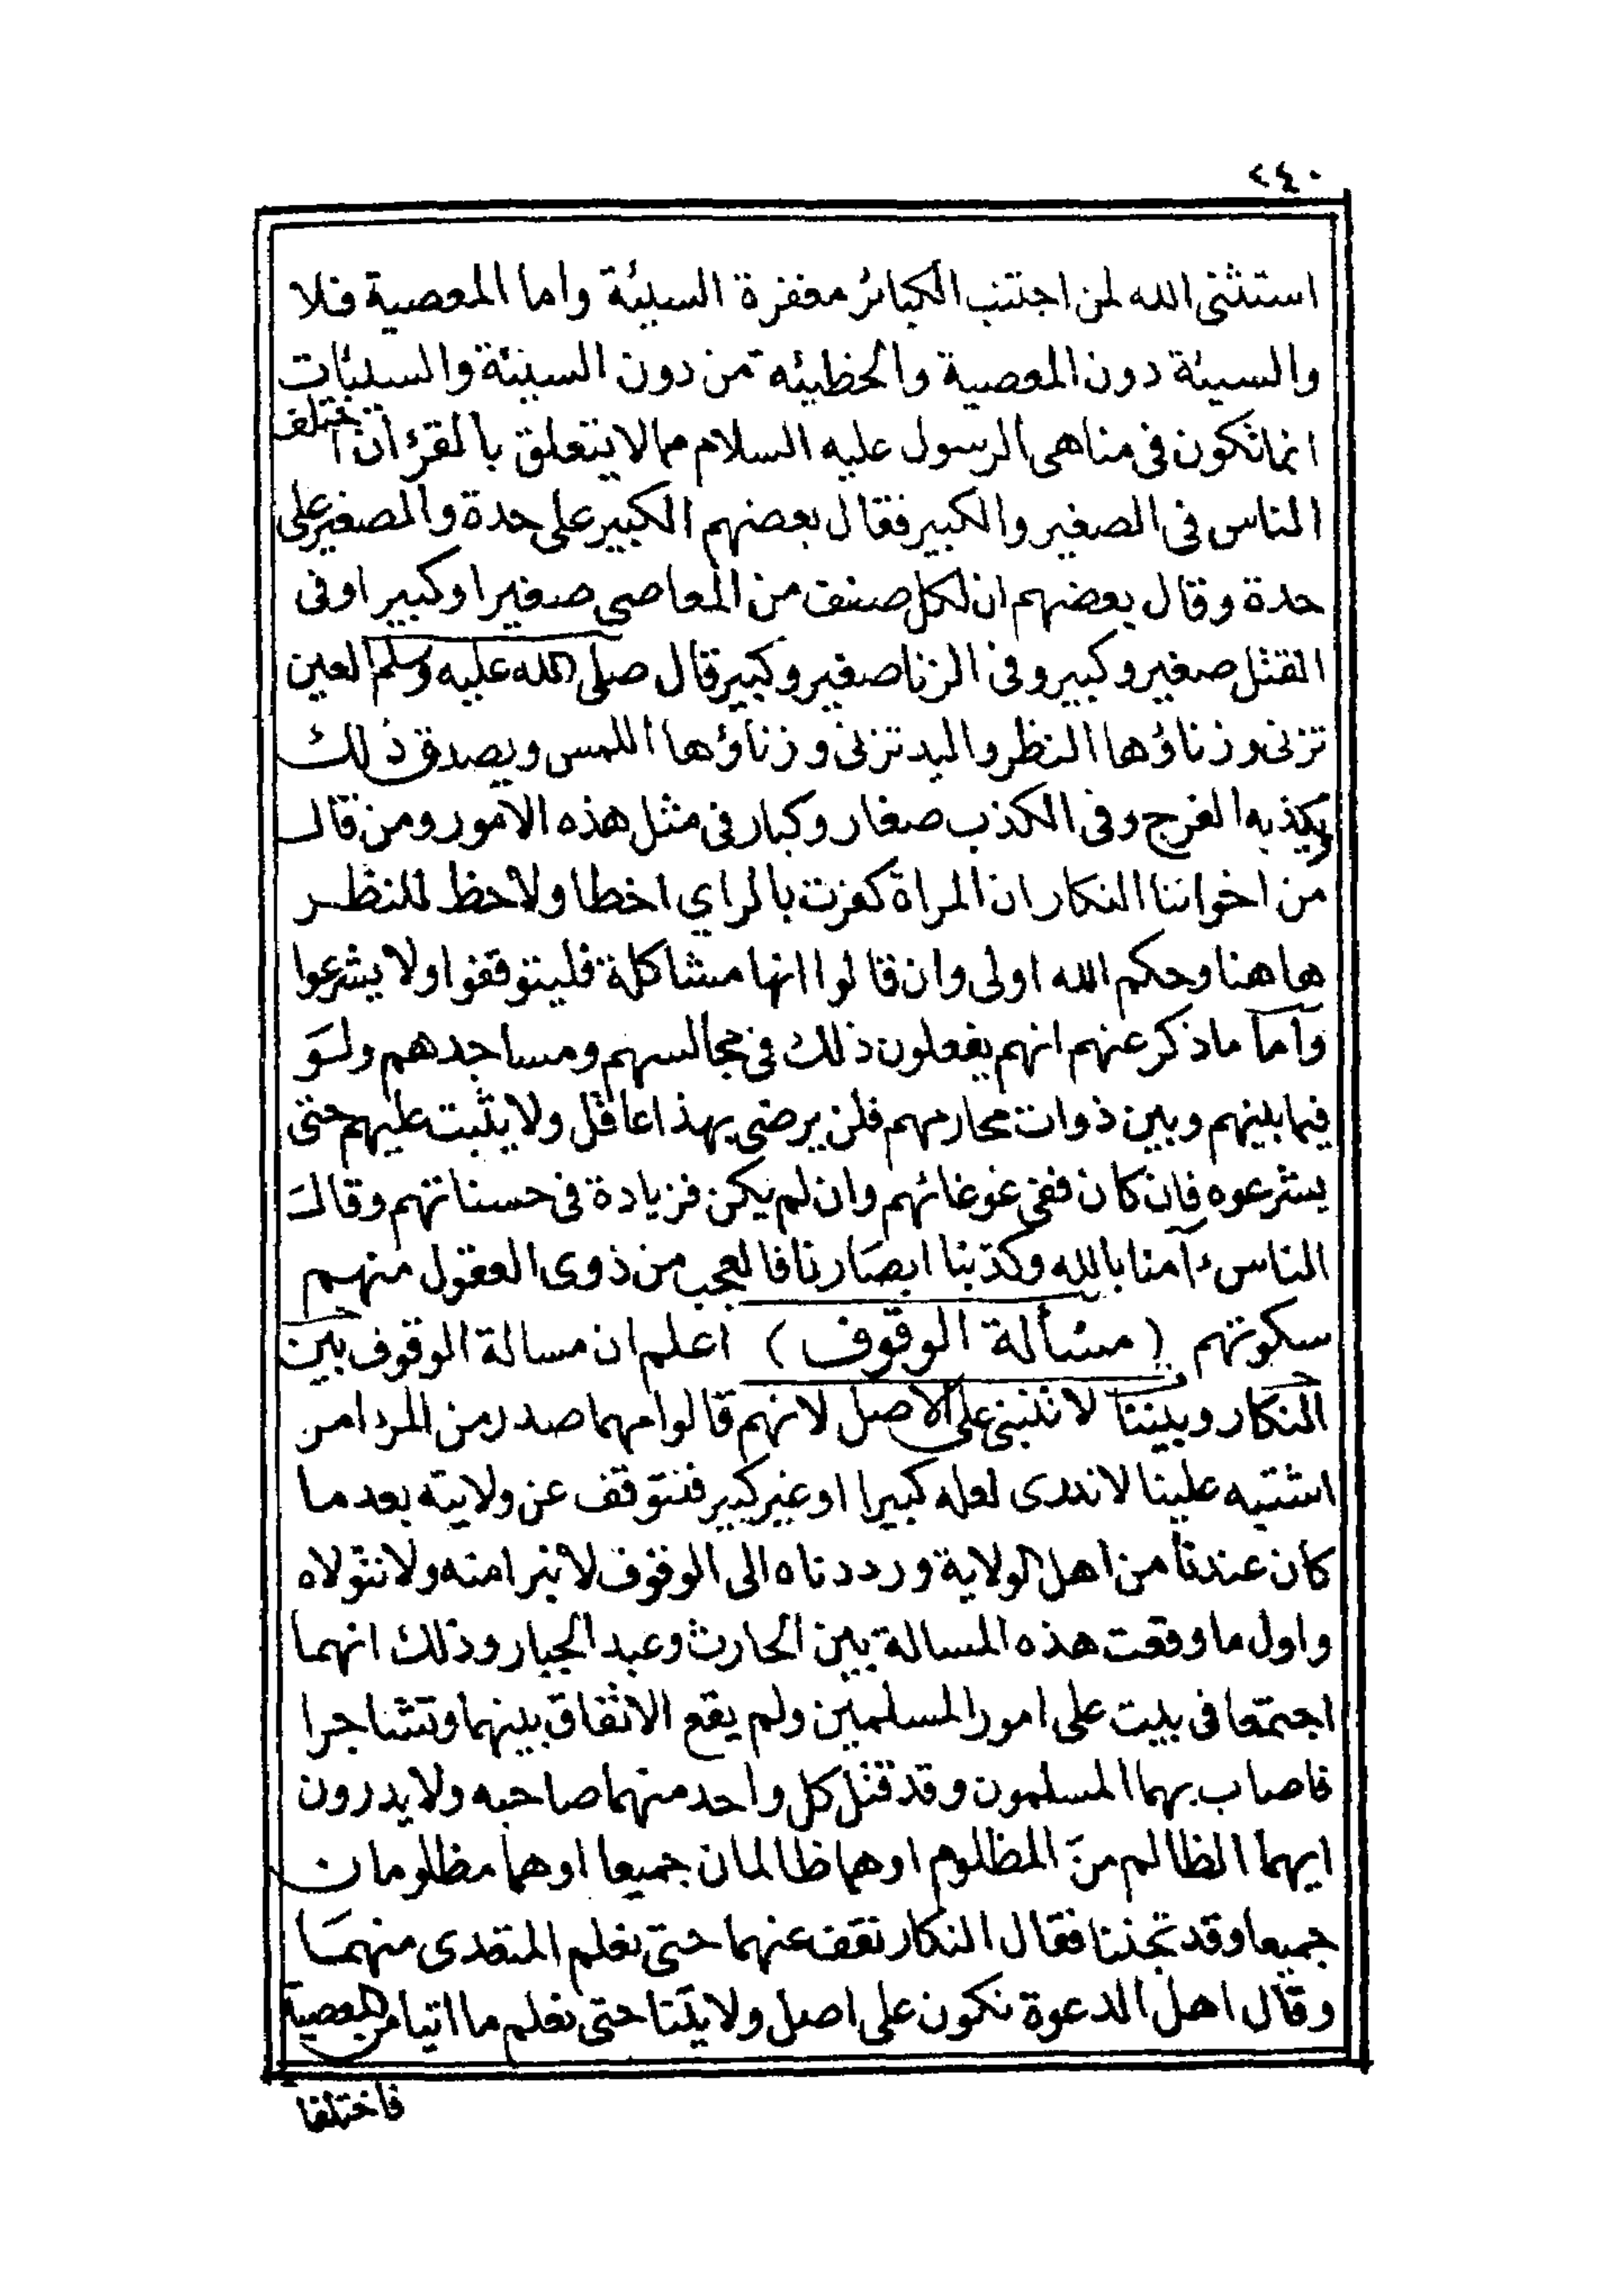 ٢٤٠
استثنى الله لمن اجتنب الكبائر مغفرة السيئة واما المعصية فلا
والسيئة دون المعصية والخطيئه من دون السيئة والسيئات
انما تكون فى مناهى الرسول عليه السلام مما لا يتعلق بالقرءان اختلف
الناس فى الصغير والكبير فقال بعضهم الكبير على حدة والصغير على
حدة وقال بعضهم ان لكل صنف من المعاصى صغيرا وكبيرا وفى
القتل صغير وكبير وفى الزنا صغير وكبير قال صلى الله عليه وسلم العين
تزنى وزناؤها النظر واليد تزنى وزناؤها اللمس ويصدق ذلك
ويكذبه الفرج وفى الكذب صغار وكبار فى مثل هذه الامور ومن قال
من اخواننا النكار ان المراة كفرت بالراي اخطا ولا حظ للنظر
هاهنا وحكم الله اولى وان قالوا انها مشاكلة فليتوقفوا ولا يشرعوا
وآما ما ذكر عنهم انهم يفعلون ذلك فى مجالسهم ومساجدهم ولو
فيما بينهم وبين ذوات محارمهم فلن يرضى بهذا عاقل ولا يثبت عليهم حتى
يشرعوه فان كان ففى غوغائهم وان لم يكن فزيادة فى حسناتهم وقال
الناس ءآمنا بالله وكذبنا ابصارنا فالعجب من ذوى العقول منهم
سكوتهم (مسألة الوقوف) اعلم ان مسالة الوقوف بين
النكار وبيننا لا تنبنى على الاصل لانهم قالوا مهما صدر من المرء امر
اشتبه علينا لا ندرى لعله كبيرا او غير كبير فنتوقف عن ولايته بعد ما
كان عندنا من اهل الولاية ورددناه الى الوقوف لا نبرا منه ولا نتولاه
واول ما وقعت هذه المسالة بين الحارث وعبد الجبار وذلك انهما
اجتمعا فى بيت على امور المسلمين ولم يقع الاتفاق بينهما وتشاجرا
فاصاب بهما المسلمون وقد قتل كل واحد منهما صاحبه ولا يدرون
ايهما الظالم من المظلوم او هما ظالمان جميعا او هما مظلومان
جميعا وقد فقال النكار نقف عنهما حتى نعلم المتعدى منهما
وقال اهل الدعوة نكون على اصل ولايتنا حتى نعلم ما اتيا من المعصية
فاختلفا